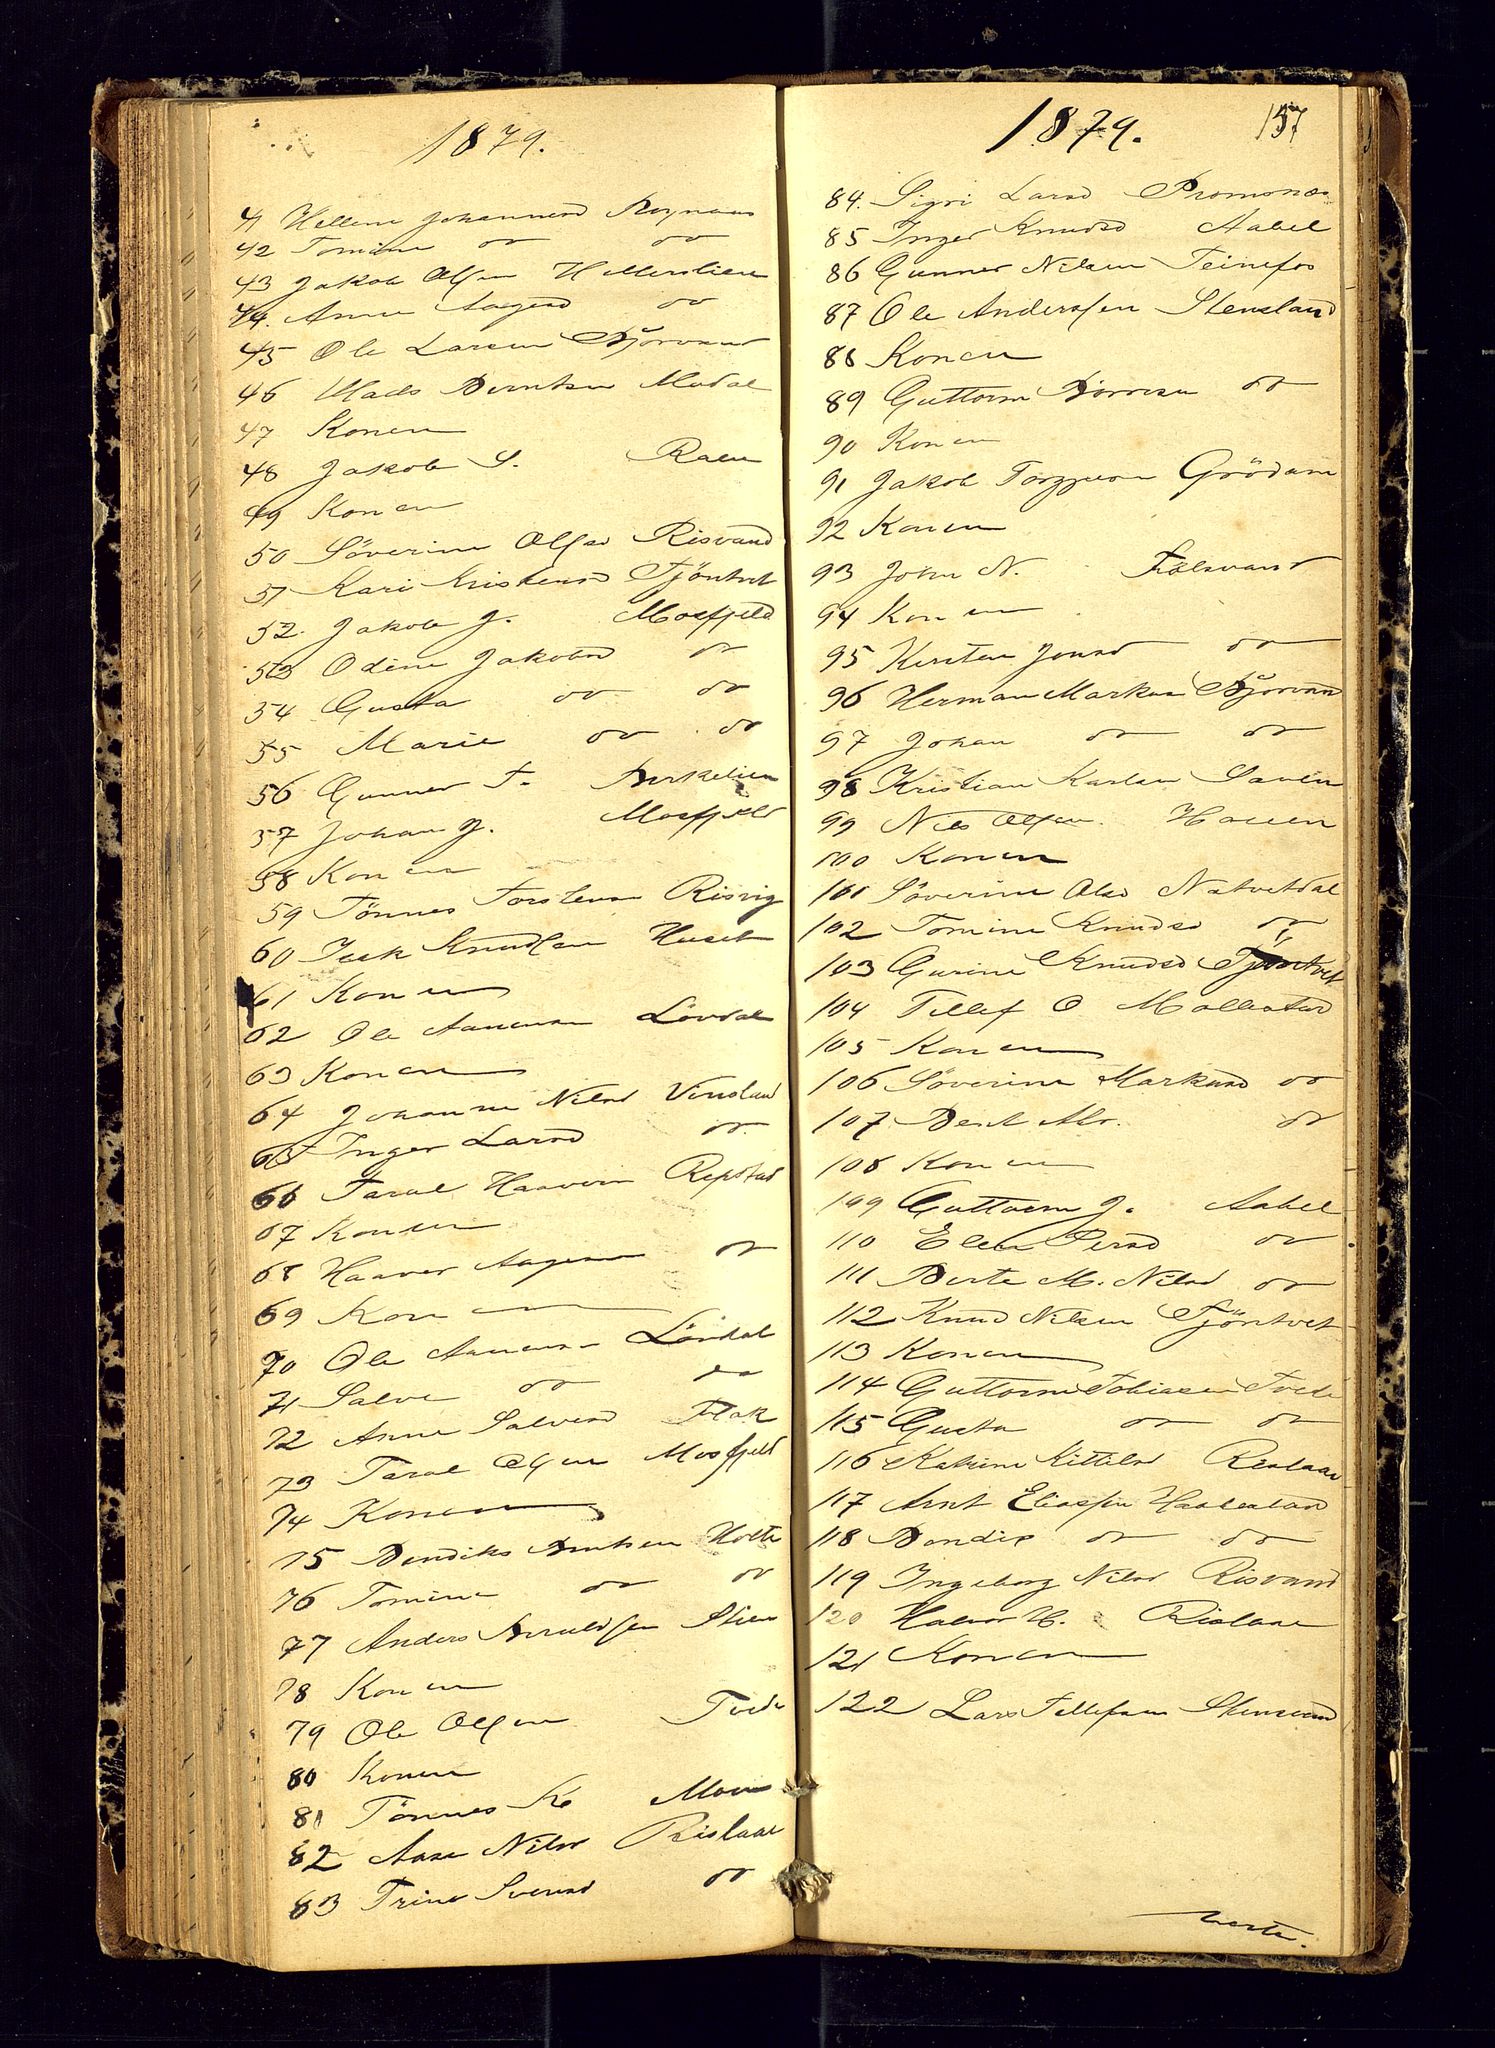 1879.
41 Hellene Johannesd Røynaas
42 Tomine do do
43 Jakob Olsen Hellerslien
44. Anne Aagesd do
45 Ole Larsen Bjorvand
46 Mads Berntsen Modal
47 Konen
48 Jakob S. Raen
49 Konen
50 Söverine Olsd Risvand
51 Kari Kristensd Tjöntvet
52. Jakob J. Mosfjeld
53 Odine Jakobsd do
54 Gusta do do
55 Marie do do
56 Gunner T. Birkelien
57 Johan J. Mosfjeld
58 Konen
59 Tönnes Torstens Risvig
60 Isak Knudsen Huset
61 Konen
62 Ole Aanensen Lövdal
63 Konen
64 Johanne Nilsd Vinsland
65 Inger Larsd do
66 Taral Haavors Repstad
67 Konen
68 Haavor Aagesen do
69 Konen
70 Ole Aanensen Lövdal
71 Salve do do
72 Anne Salvesd Flak
73 Taral Olsen Mosfjeld
74 Konen
75 Bendiks Berntsen Holte
76 Tomine do do
77 Anders Arnuldsen Stien
78 Konen
79 Ole Olsen Tvede
80 Konen
81 Tönnes K Moen
82 Aase Nilsd Rislaa
83 Trine Svensd do
1879. 157
84. Sigri Larsd Bromsnes
85 Inger Knudsd Aabel
86 Gunner Nilsen Teinefos
87 Ole Andersen Stensland
88 Konen
89 Guttorm Börresen do
90 Konen
91 Jakob Torgjusen Grödum
92 Konen
93 John N. Fidsvand
94 Konen
95 Kirsten Jonsd do
96 Herman Markus Bjorvand
97 Johan do do
98 Kristian Karlsen Saven
99 Nils Olsen Hauen
100 Konen
101 Söverine Olsd Natvetdal
102 Tomine Knudsd do
103 Gurine Knudsd Tjöntvet
104 Tellef O Mollestad
105 Konen
106 Söverine Markusd do
107 Bent Abr. do
108 Konen
109 Guttorm J. Aabel
110 Elen Persd do
111 Berte M. Nilsd do
112 Knud Nilsen Tjöntvet
113 Konen
114 Guttorm Tobiasen Tvede
115 Gusta do do
116 Katrine Kittilsd Reslaa
117 Arnt Eliassen Haabesland
118 Bendix do do
119 Ingeborg Nilsd Risvand
120 Halvor H. Rislaa
121 Konen
122 Lars Tellefsen Stensvand
verte.